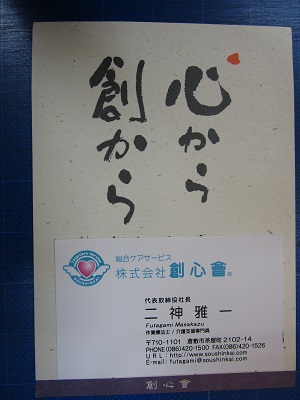 心から
創から
総合ケアサービス
株式会社 創心會®
代表取締役社長
二神 雅一
Futagami Masakazu
作業療法士 / 介護支援専門員
〒710-1101 倉敷市茶屋町2102-14
PHONE(086)420-1500 FAX(086)420-1526
URL: http://www.soushinkai.com
E-mail: futagami@soushinkai.com
創心會